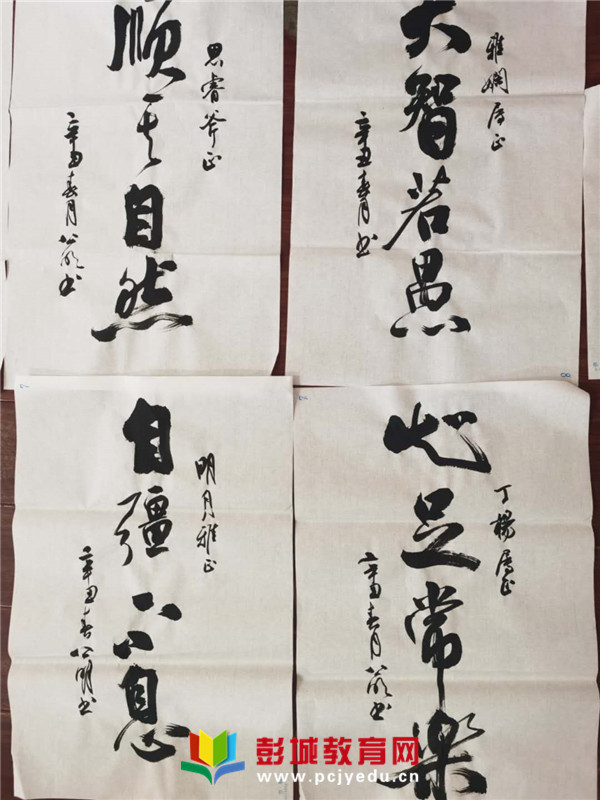 思睿斧正
顺其自然
辛丑春月公明书
雅娴属正
大智若愚
辛丑春月书
明月雅正
自彊不息
辛丑春公明书
丁楊属正
知足常樂
辛丑春月公明书
彭城教育网
www.pcjyedu.cn